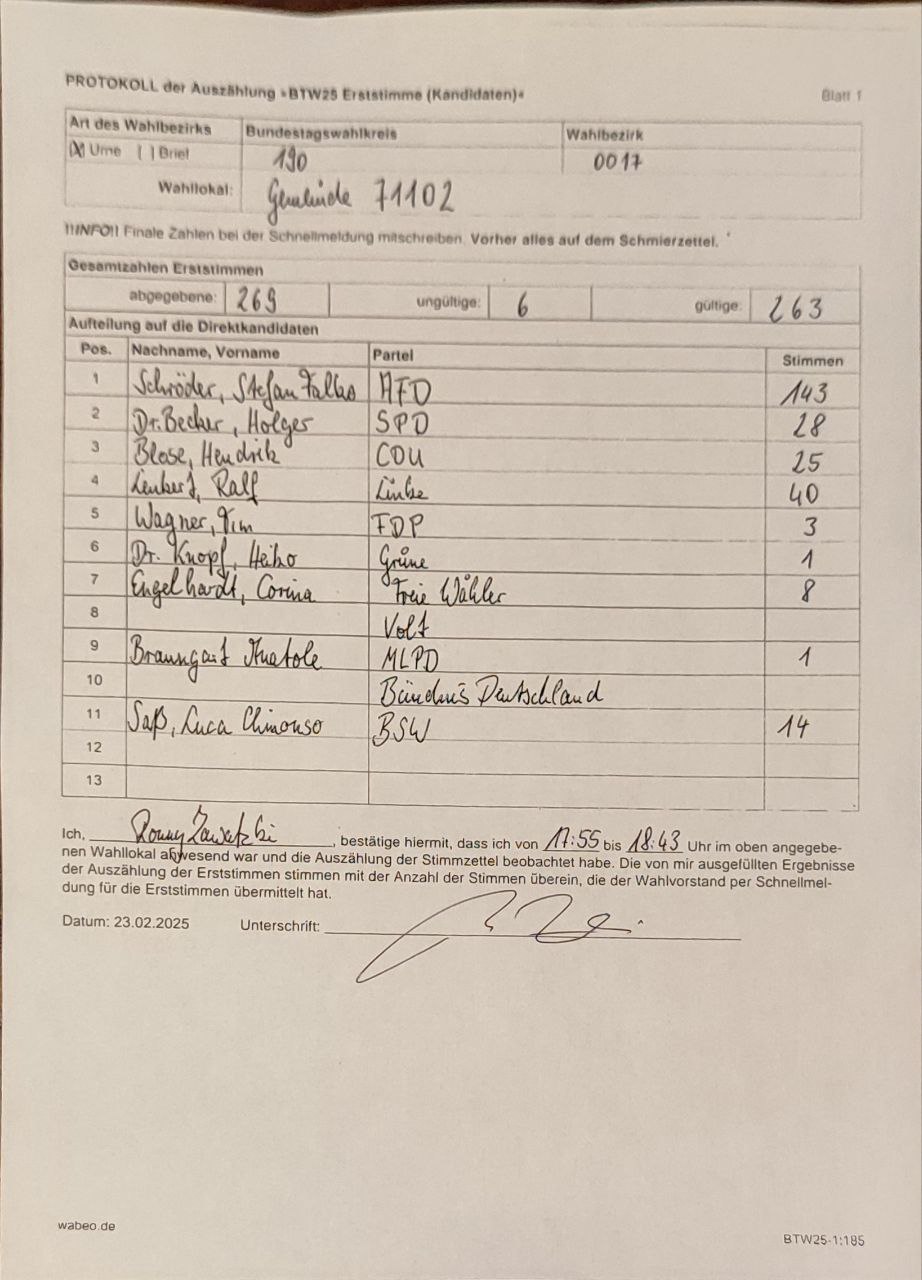 PROTOKOLL der Auszählung »BTW25 Erststimme (Kandidaten)« Blatt 1
Art des Wahlbezirks Bundestagswahlkreis Wahlbezirk
[X] Urne [ ] Brief 190 0017
Wahllokal: Gemeinde 71102
!!INFO!! Finale Zahlen bei der Schnellmeldung mitschreiben. Vorher alles auf dem Schmierzettel.
Gesamtzahlen Erststimmen
abgegebene: 269 ungültige: 6 gültige: 263
Aufteilung auf die Direktkandidaten
Pos. Nachname, Vorname Partei Stimmen
1 Schröder, Stefan Falko AFD 143
2 Dr. Becker, Holger SPD 28
3 Blose, Hendrik CDU 25
4 Lenkert, Ralf Linke 40
5 Wagner, Tim FDP 3
6 Dr. Knopf, Heiko Grüne 1
7 Engelhardt, Corina Freie Wähler 8
8 Volt
9 Braungart Anatole MLPD 1
10 Bündnis Deutschland
11 Saß, Luca Chinonso BSW 14
12
13
Ich, Ronny Zawatzki, bestätige hiermit, dass ich von 17:55 bis 18:43 Uhr im oben angegebe-
nen Wahllokal anwesend war und die Auszählung der Stimmzettel beobachtet habe. Die von mir ausgefüllten Ergebnisse
der Auszählung der Erststimmen stimmen mit der Anzahl der Stimmen überein, die der Wahlvorstand per Schnellmel-
dung für die Erststimmen übermittelt hat.
Datum: 23.02.2025 Unterschrift:
wabeo.de
BTW25-1:185